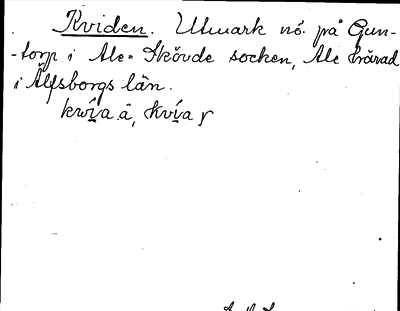 Kviden. Utmark nö. på Gun-
-torp i Ale-Skövde socken, Ale härad
i Älfsborgs län.
kwía å, kvía